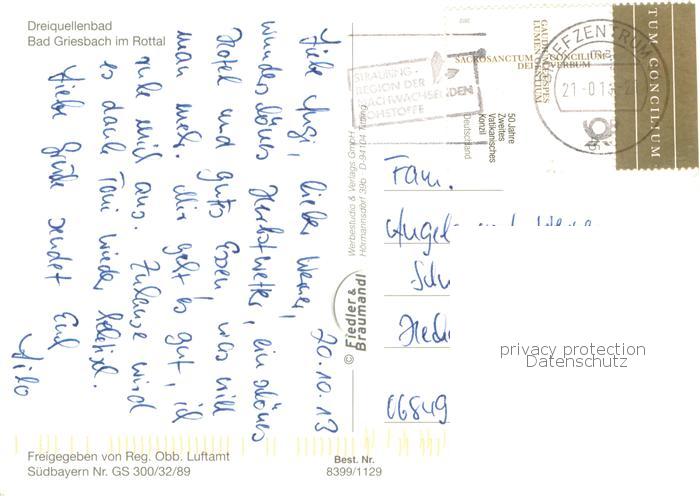 Dreiquellenbad
Bad Griesbach im Rottal
20.10.13
Liebe Angi, lieber Werner,
wunderschönes Herbstwetter, ein schönes
Hotel und gutes Essen, was will
man mehr. Mir geht's gut, ich
ruhe mich aus. Zuhause wird
es dank Toni wieder
Liebe Grüße sendet Euch
Freigegeben von Reg. Obb. Luftamt
Südbayern Nr. GS 300/32/89
Best. Nr.
8399/1129
© Fiedler &
Braumandl
Werbestudio & Verlags GmbH
Hörmannsdorf 39b D-94104 Tittling
STRAUBING -
REGION DER
NACHWACHSENDEN
ROHSTOFFE
SACROSANCTUM CONCILIUM
DEI VERBUM
GAUDIUM ET SPES
LUMEN GENTIUM
50 Jahre
Zweites
Vatikanisches
Konzil
Deutschland
BRIEFZENTRUM
94
TUM CONCILIUM
Fam.
Angel
06849
privacy protection
Datenschutz